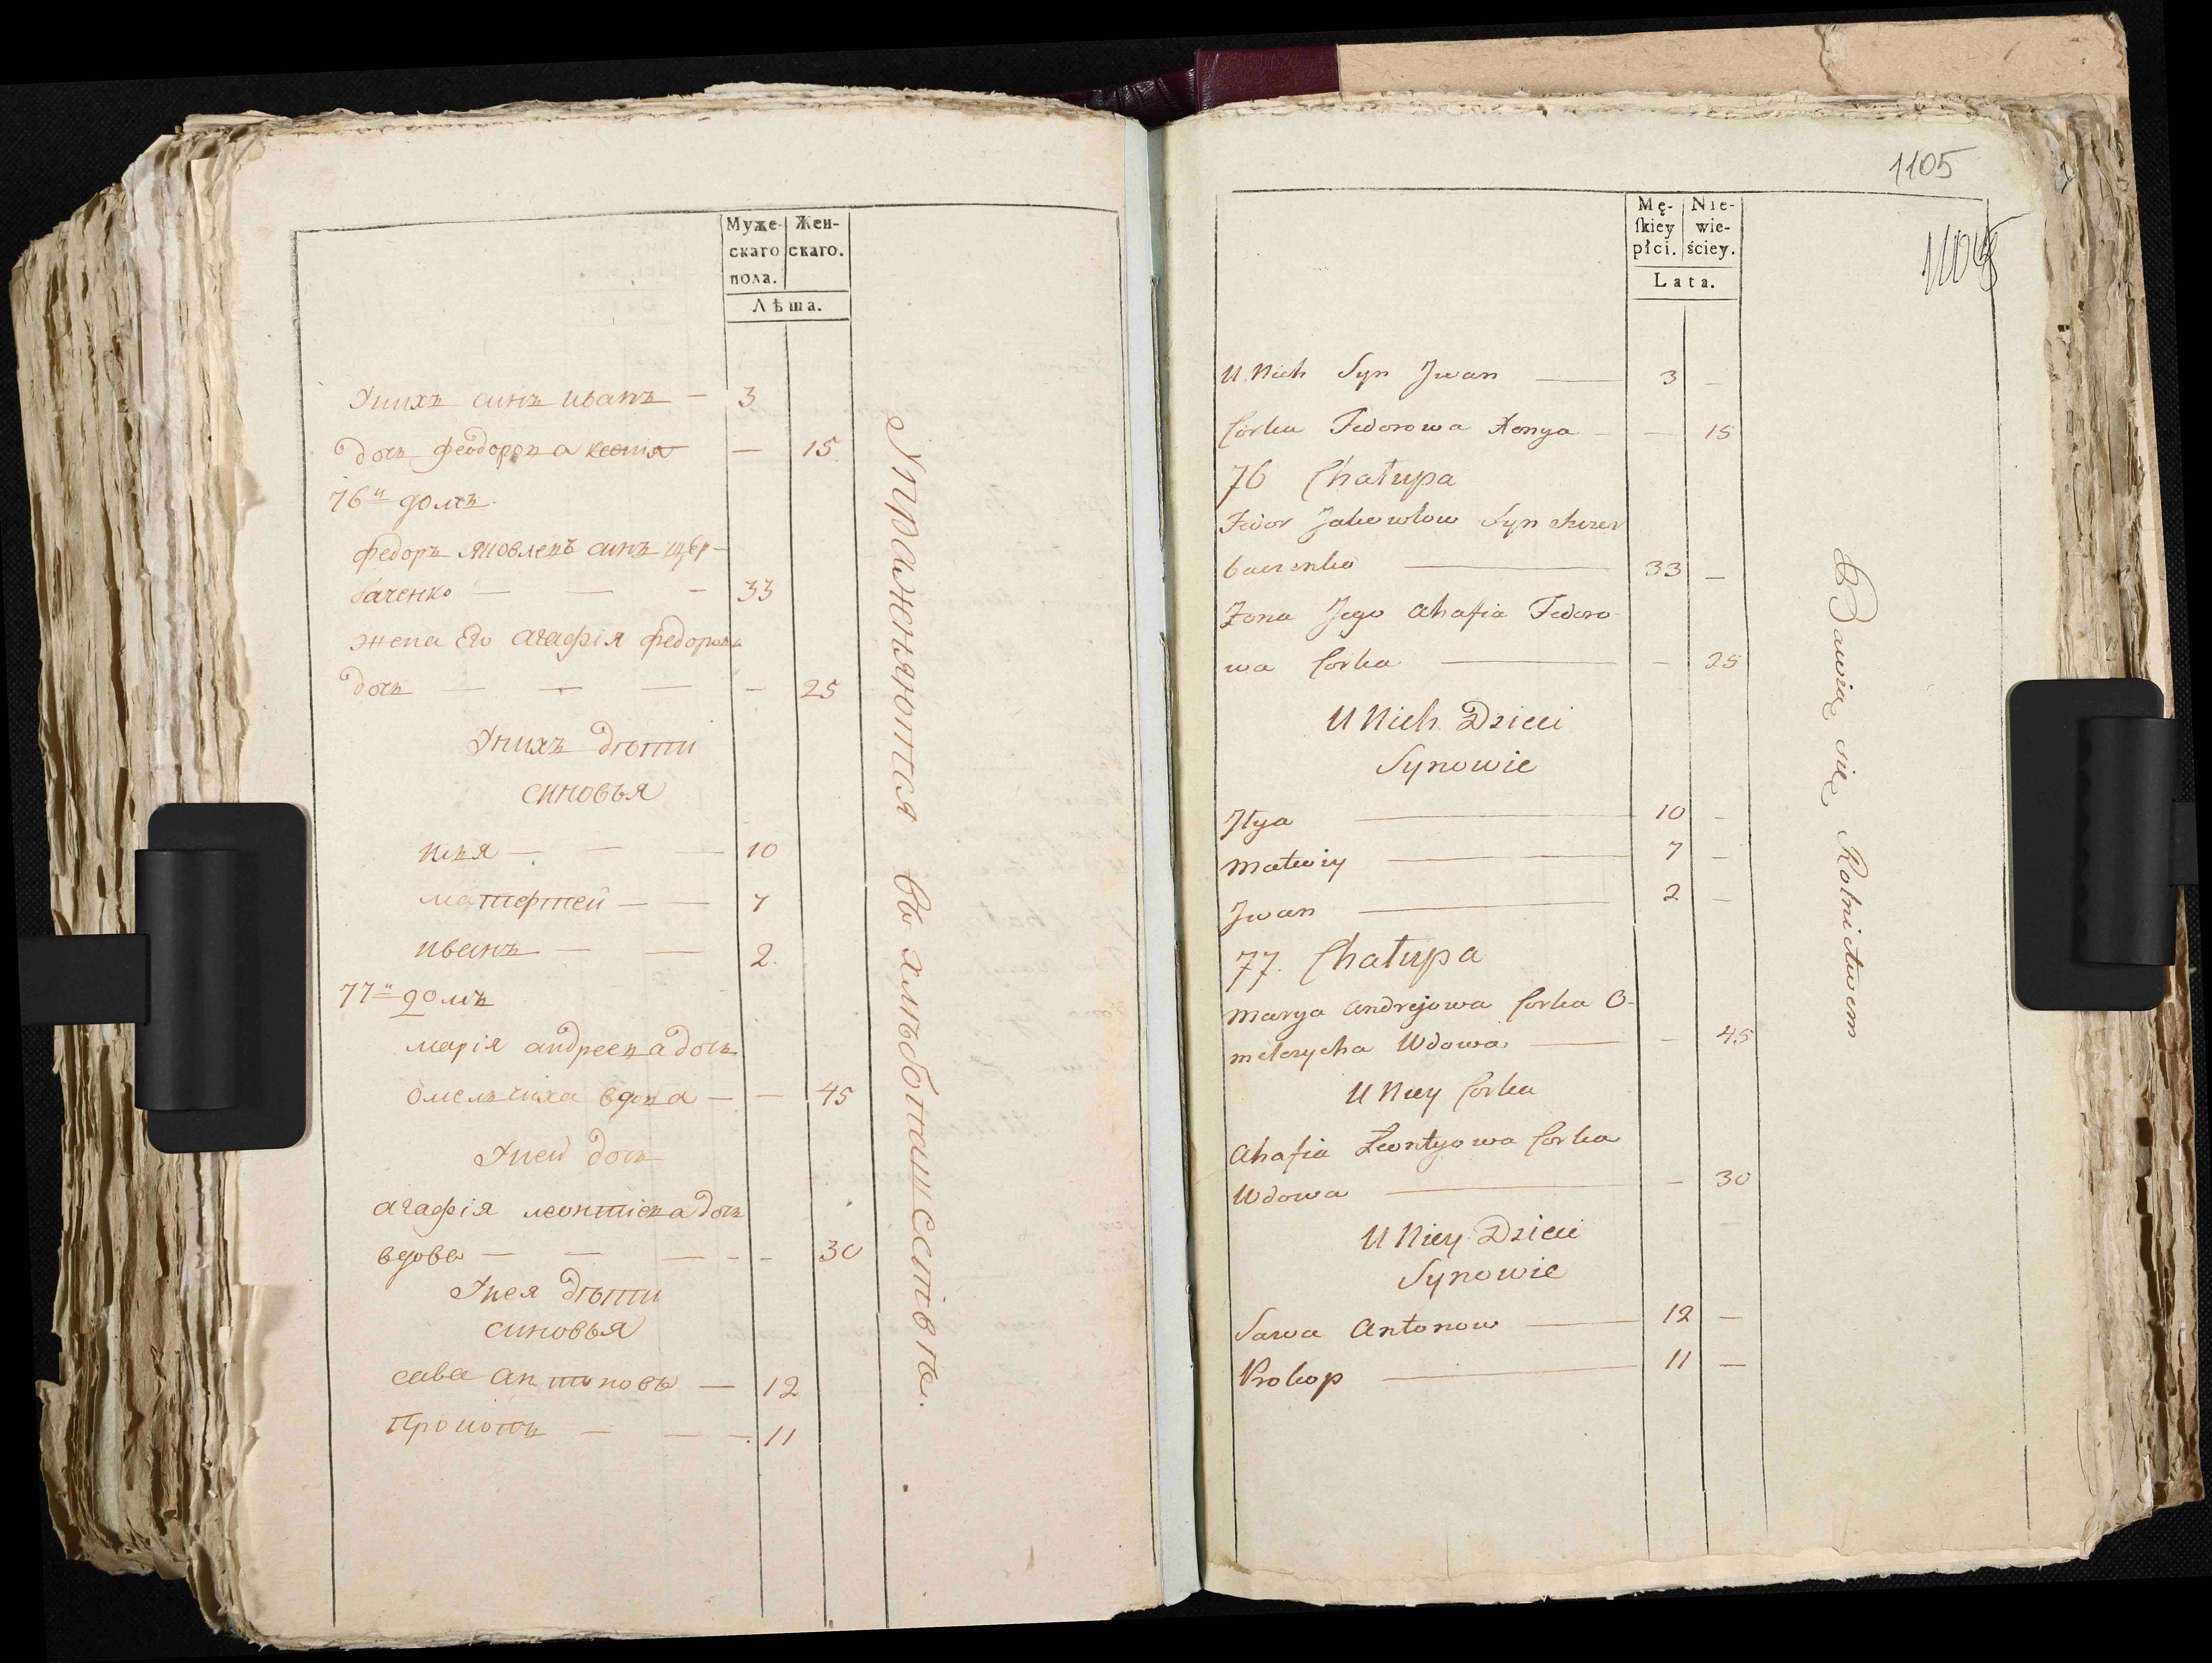 Муже-
скаго
пола.
Жен-
скаго.
Лѣта.
Унихъ синъ иванъ — 3
дочь феодорова ксенія — 15
76й домъ
федоръ яковлевъ синъ щер-
баченко — — - 33
жена Его агафія федорова
дочь — — — - 25
Унихъ дѣти
синовья
илья — — — 10
матфтей — — 7
иванъ — — 2.
77й домъ
марія андреева дочь
омельчиха вдова — — 45
Уней дочь
агафія леонтіева дочь
вдова — — — - - 30
Унея дѣти
синовья
сава антоновъ — 12
Прокопъ — — — 11
Упражняются въ хлѣбопашествѣ.
1105
1105
Mę-
ſkiey
płci.
Nie-
wie-
ściey.
Lata.
U Nich Syn Jwan — 3 —
Corka Fedorowa Xenya — — 15
76 Chałupa
Fedor Jakowlow Syn Szczer
baczenko — 33 —
Żona Jego Ahafia Fedoro-
wa Corka — - 25
U Nich Dzieci
Synowie
Jlya — 10 -
Matwiy — 7 —
Jwan — 2 —
77. Chałupa
Marya Andrejowa Corka O-
melczycha Wdowa — - 45
U Niey Corka
Ahafia Leontyowa Corka
Wdowa — - 30
U Niey Dzieci
Synowie
Sawa Antonow — 12 —
Prokop — 11 —
Bawią się Rolnictwem